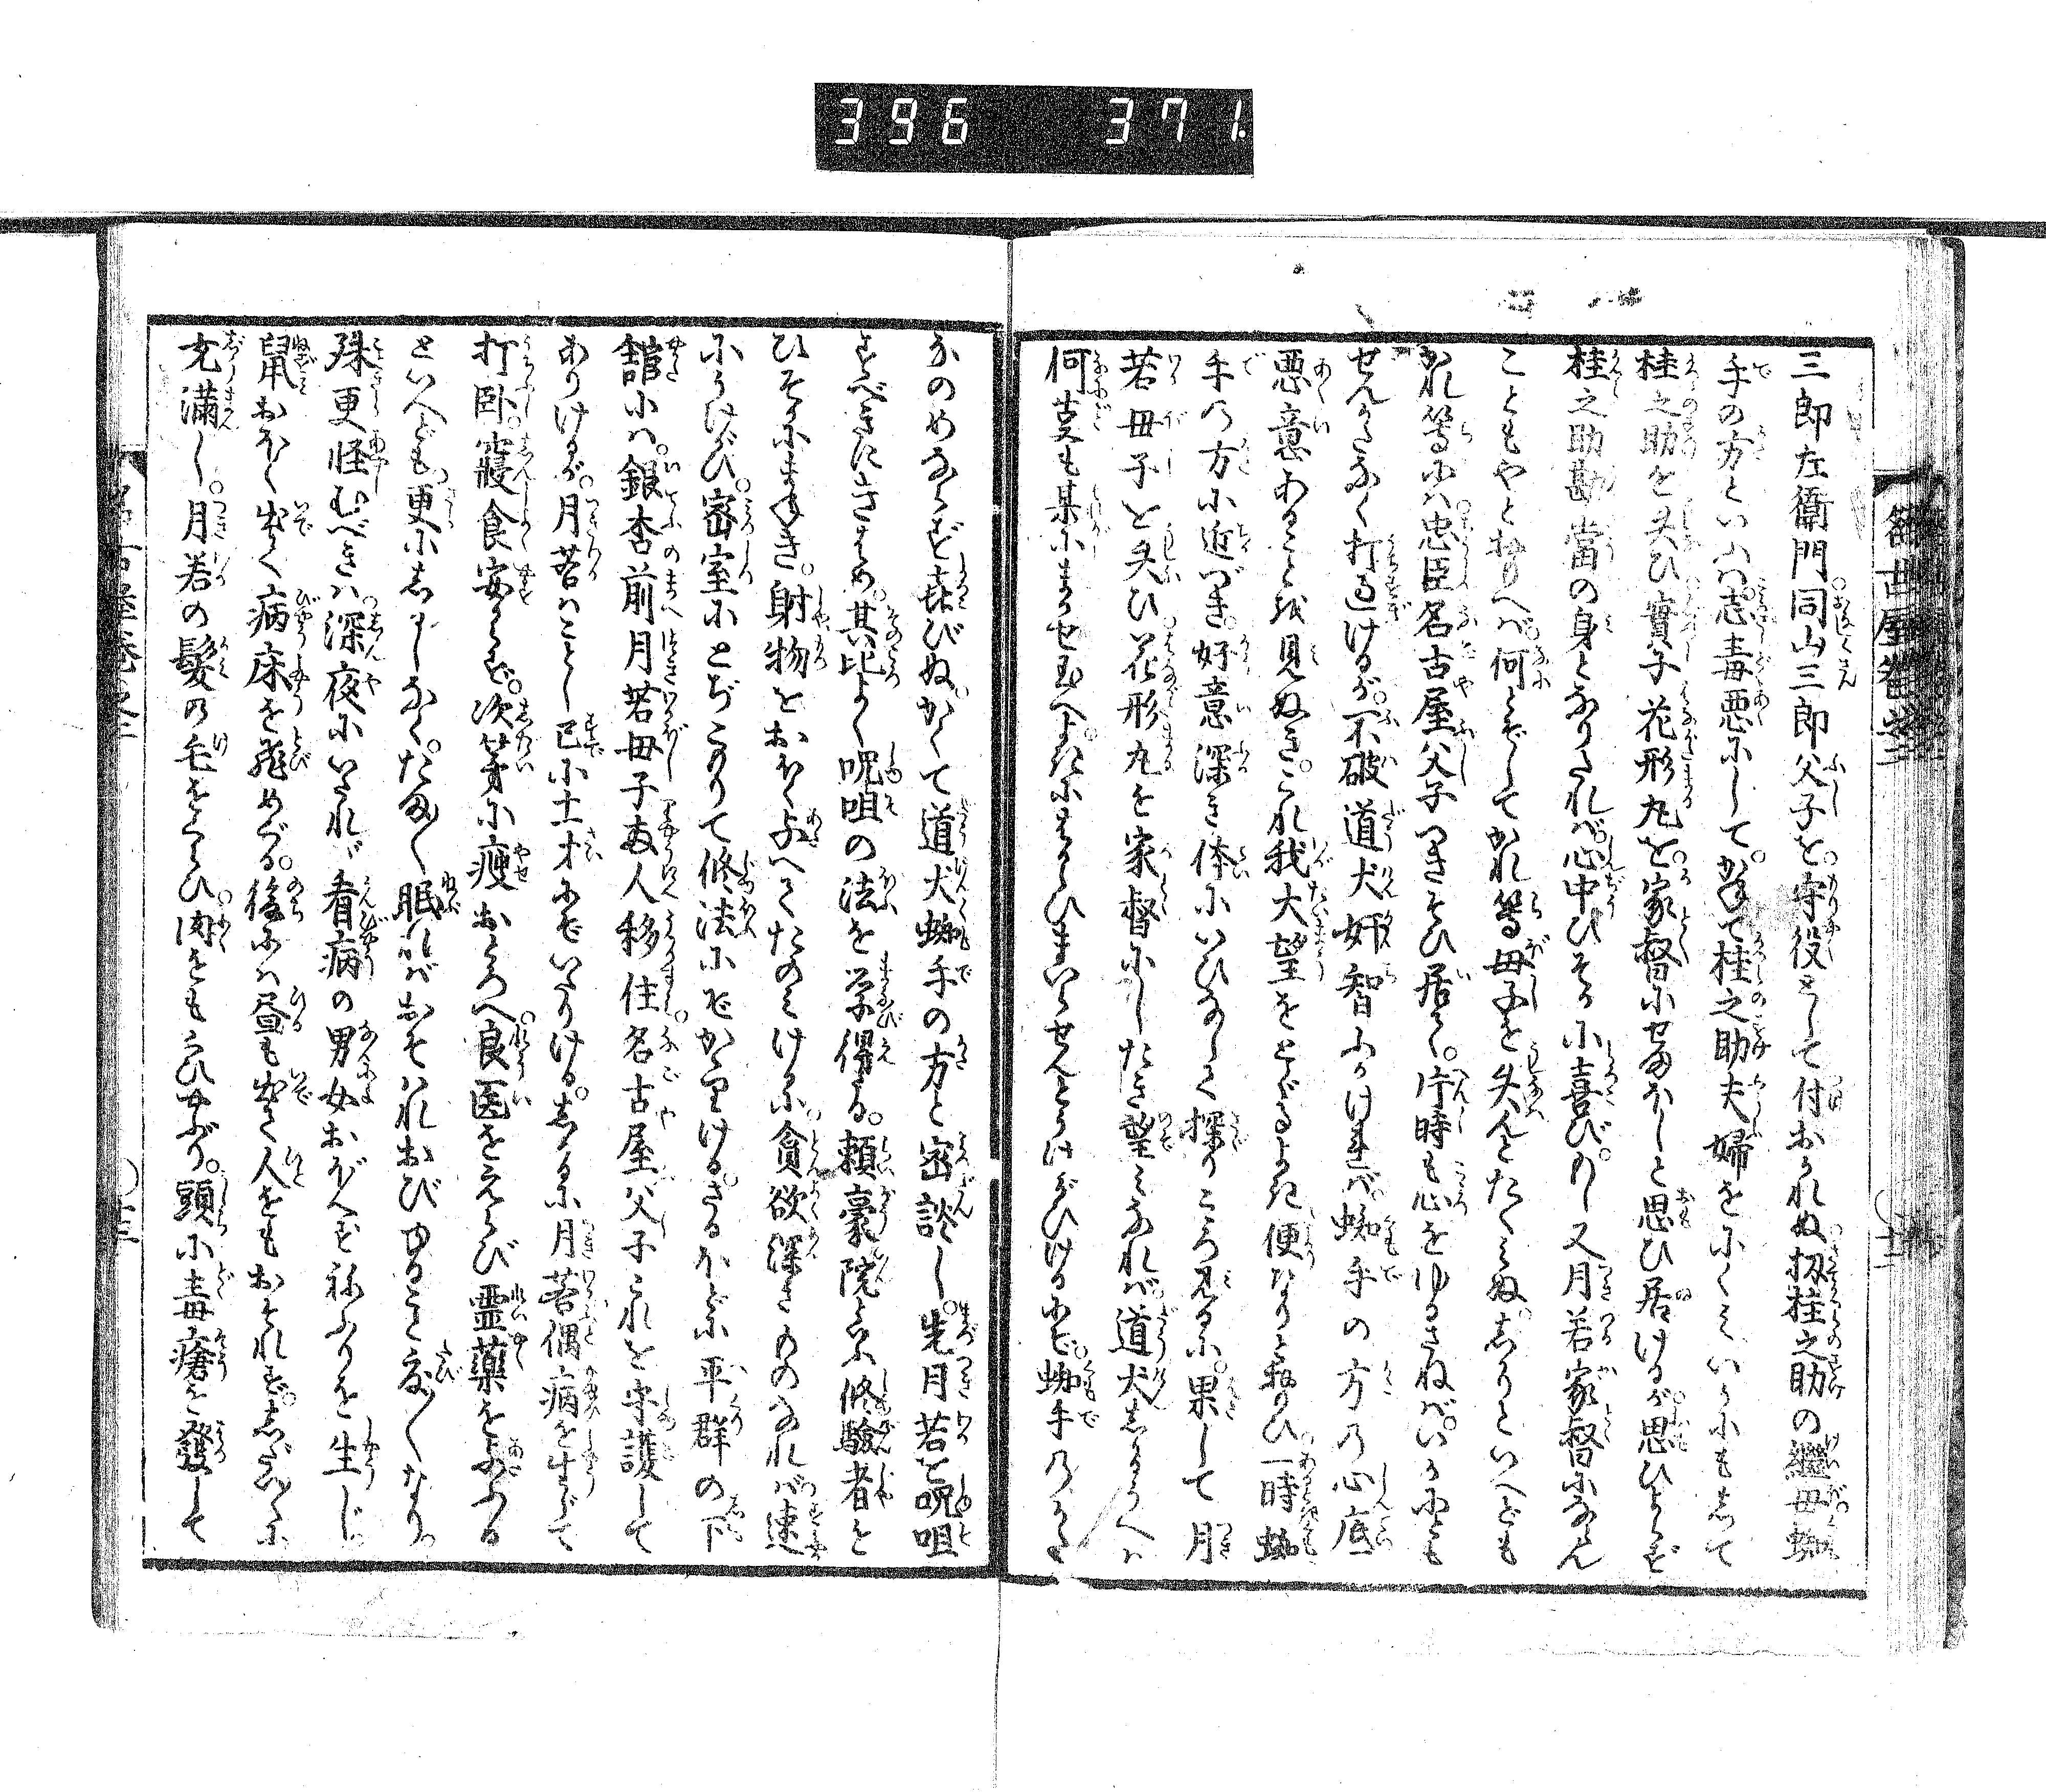 396 371
三郎左衛門同山三郎父子を守役として付おかれぬ扨桂之助の継母蜘
手の方といふは志毒悪にしてかねて桂之助夫婦をにくみいかにもして
桂之助を失ひ實子花形丸を家督にせまほしと思ひ居けるが思ひよらず
桂之助勘當の身となりたれば心中ひそかに喜びしが又月若家督にならん
こともやとおもへば何とぞしてかれ等母子を失んとたくみぬしかりといへども
かれ等には忠臣名古屋父子つきそひ居て片時も心をゆるさねばいかにとも
せんかたなく打過けるが不破道犬奸智にたけたれば蜘手の方の心底
悪意あることを見ぬきこれ我大望をとぐるよき便なりと思ひ一時蜘
手の方に近づき好意深き体にいひなして探りこころ見るに果して月
若母子を失ひ花形丸を家督にしたき望みなれば道犬しからうへは
何事も某にまかせ玉へよきにはからひまいらせんとうけがひけるにぞ蜘手のかた
なのめならず喜びぬかくて道犬蜘手の方と密談し先月若を呪咀
すべきにさだめ其比よく呪咀の法を学得たる頼豪院といふ修驗者を
ひそかにまねき射物をおほくあたへてたのみけるに貪欲深きものなれば速
にうけがひ密室にとぢこもりて修法にぞかかりけるさるほどに平群の下
館には銀杏前月若母子両人移住名古屋父子これを守護して
ありけるが月若はことし已に十才にぞいたりける志かるに月若偶病を生じて
打臥寝食安からず次第に痩おとろへ良医をえらび霊薬をあたふる
といへども更にしるしなくたまたま眠ればおそはれおびゆること度々なり
殊更怪むべきは深夜にいたれば看病の男女おぼへずねふりを生じ
鼠おほく出て病床を飛めぐる後には昼も出て人をもおそれずしだいに
充滿し月若の髪の毛をくひ肉をもくひやぶり頭に毒瘡を發して